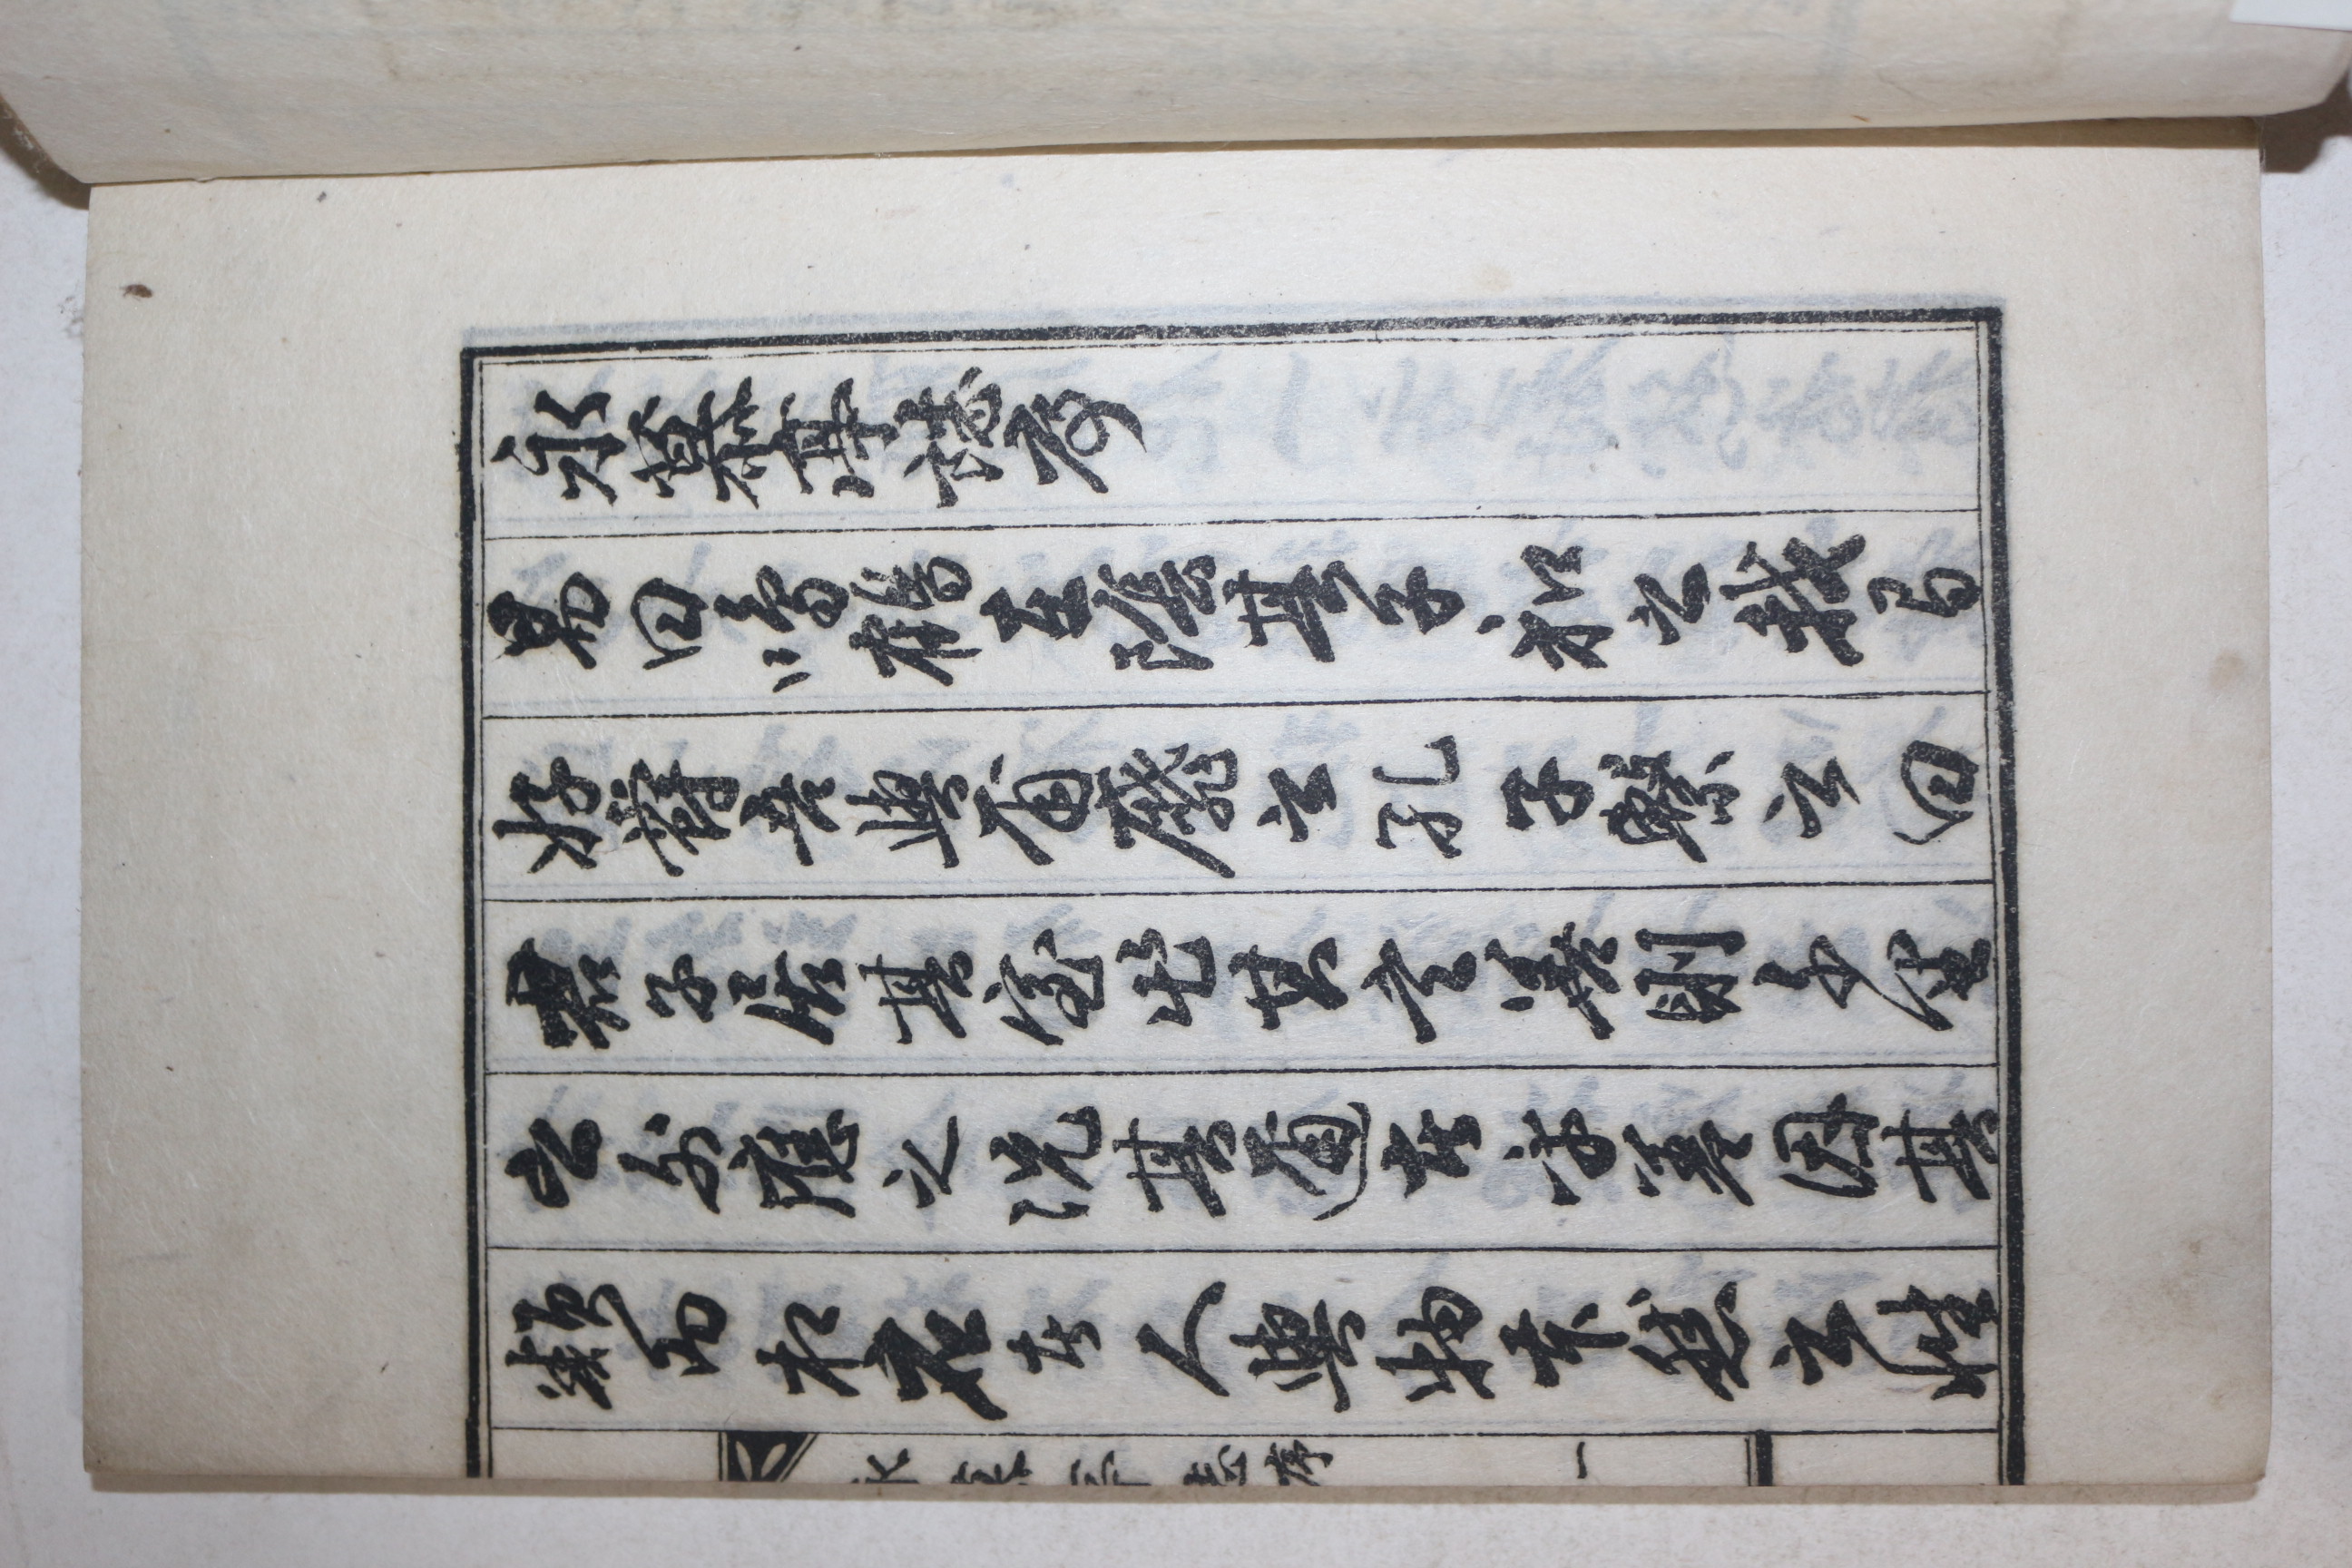 永慕亭誌序
易曰鳴鶴在陰其子和之我有
好爵吾與爾靡之孔子繫之曰
君子居其室出其言善則千里
之外應之况其邇者乎善因其
類而相者人與物本然之性
序
一